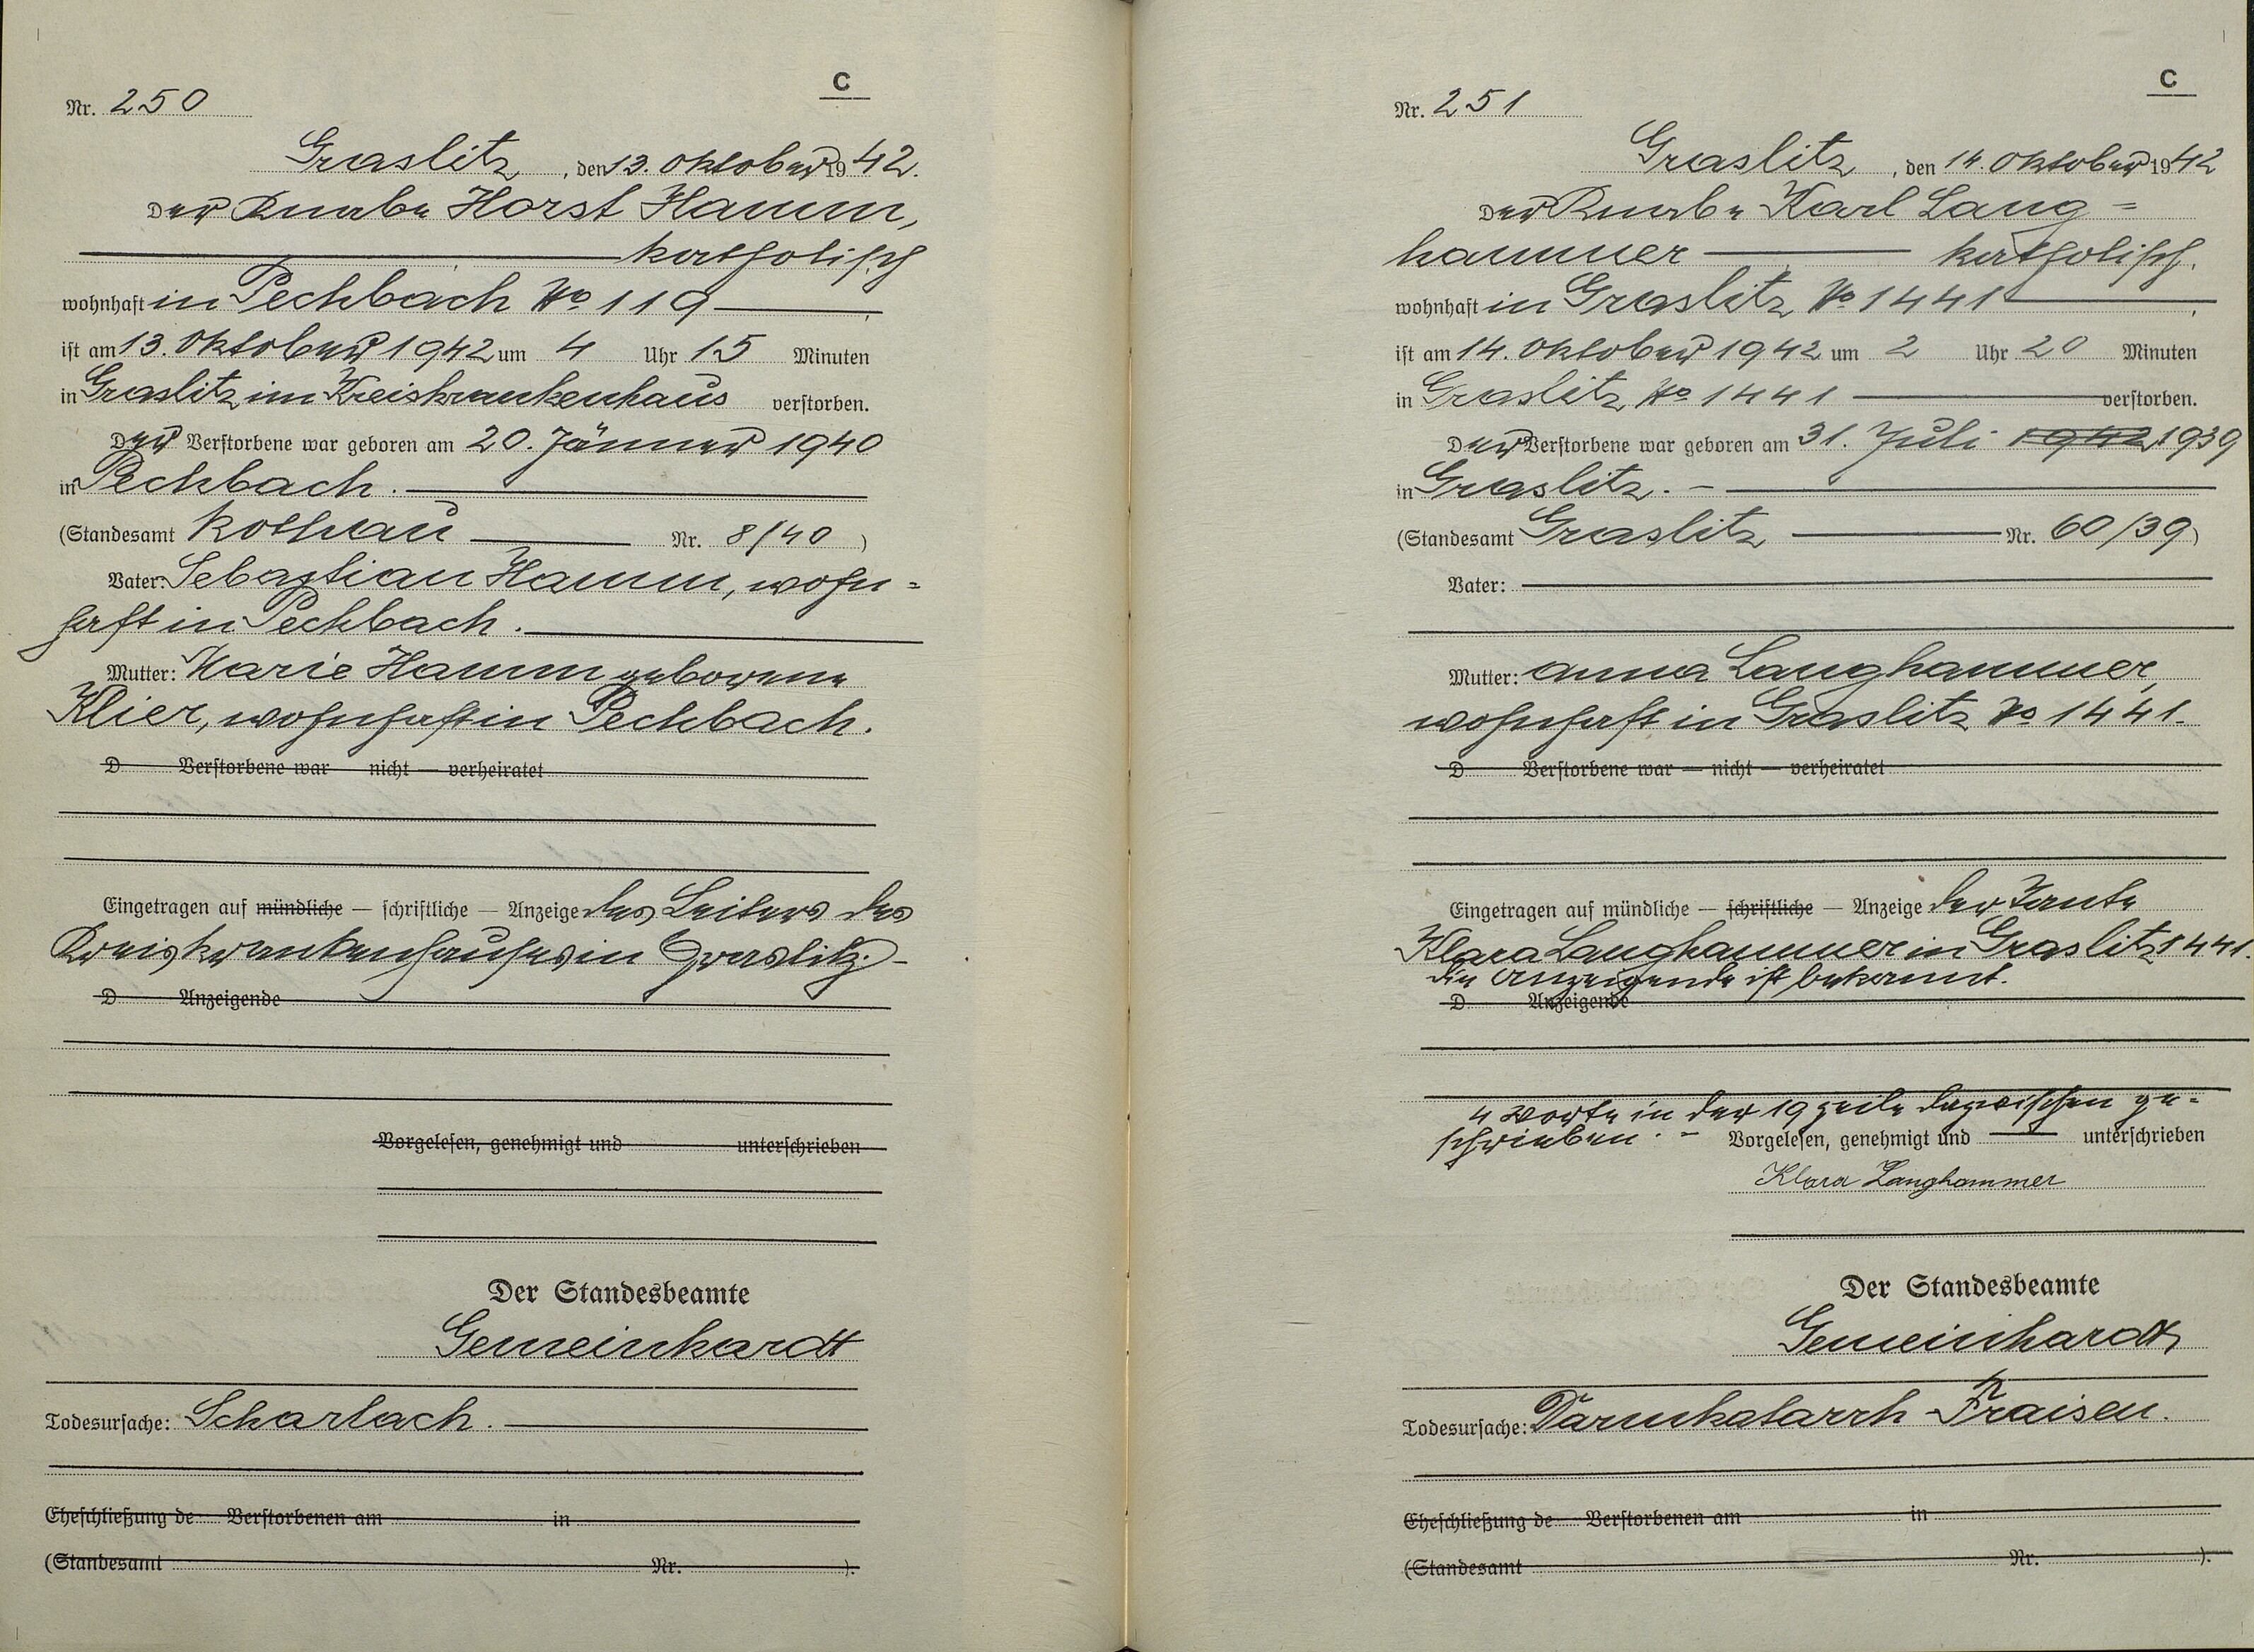 C
Nr. 250
Graslitz, den 13. Oktober 1942.
Der Knabe Horst Hamm,
katholisch
wohnhaft in Pechbach No 119
ist am 13. Oktober 1942 um 4 Uhr 15 Minuten
in Graslitz im Kreiskrankenhaus verstorben.
Der Verstorbene war geboren am 20. Jänner 1940
in Pechbach.
(Standesamt Rothau Nr. 8/40)
Vater: Sebastian Hamm, wohn=
haft in Pechbach.
Mutter: Marie Hamm geborene
Klier, wohnhaft in Pechbach.
D Verstorbene war nicht — verheiratet
Eingetragen auf mündliche — schriftliche — Anzeige des Leiters des
Kreiskrankenhauses in Graslitz.
D Anzeigende
Vorgelesen, genehmigt und unterschrieben
Der Standesbeamte
Gemeinhardt
Todesursache: Scharlach.
Eheschließung de Verstorbenen am in
(Standesamt Nr. ).
C
Nr. 251
Graslitz, den 14. Oktober 1942
Der Knabe Karl Lang=
hammer katholisch.
wohnhaft in Graslitz No 1441
ist am 14. Oktober 1942 um 2 Uhr 20 Minuten
in Graslitz No 1441 verstorben.
Der Verstorbene war geboren am 31. Juli 1942 1939
in Graslitz. -
(Standesamt Graslitz Nr. 60/39)
Vater:
Mutter: Anna Langhammer,
wohnhaft in Graslitz No 1441.
D Verstorbene war — nicht — verheiratet
Eingetragen auf mündliche — schriftliche — Anzeige der Tante
Klara Langhammer in Graslitz 1441.
Die Anzeigende ist bekannt.
D Anzeigende
4 Worte in der 19 Zeile dazwischen ge-
schrieben. - Vorgelesen, genehmigt und unterschrieben
Klara Langhammer
Der Standesbeamte
Gemeinhardt
Todesursache: Darmkatarrh - Fraisen.
Eheschließung de Verstorbenen am in
(Standesamt Nr. ).